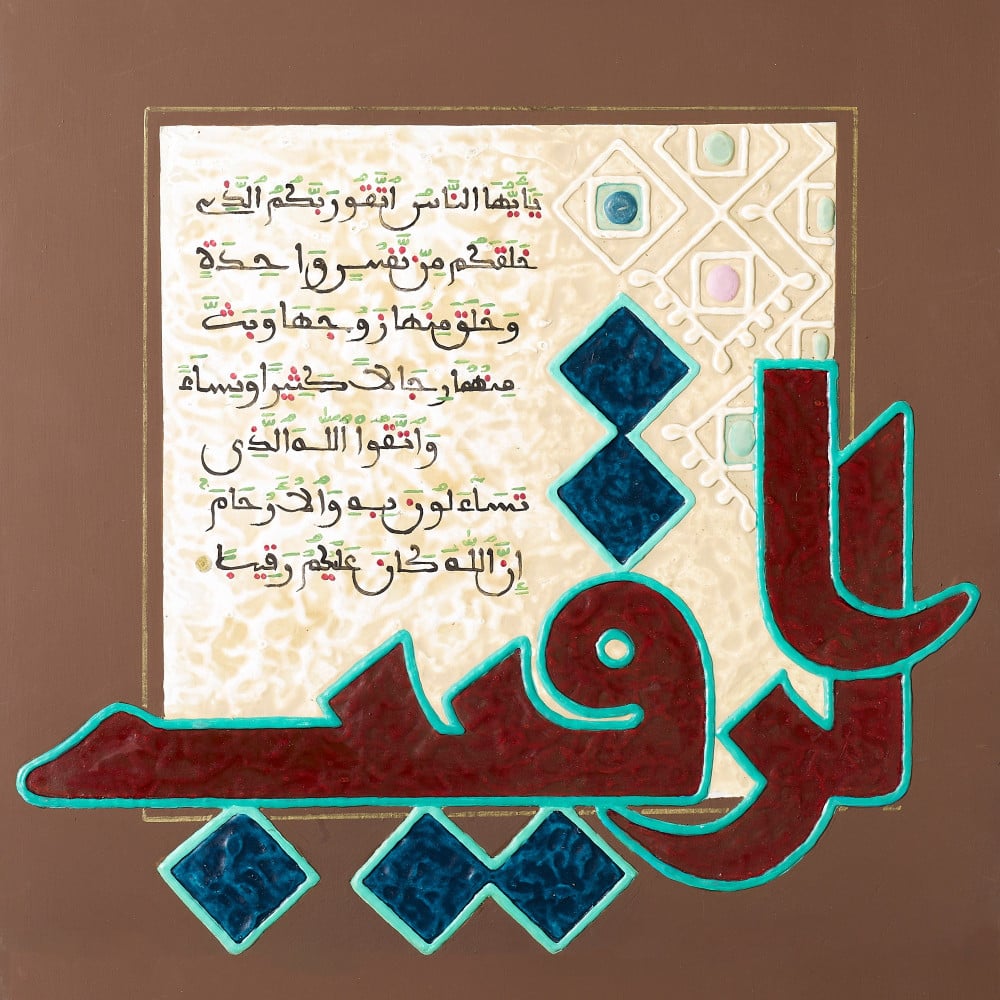 يَٰٓأَيُّهَا النَّاسُ اُتَّقُو رَبَّكُمُ الَّذِے
خَلَقَكُم مِّن نَّفْسٍ وَاحِدَةٍ
وَخَلَقَ مِنْهَا زَوْجَهَا وَبَثَّ
مِنْهُمَا رِجَالاً كَثِيراً وَنِسَآءً
وَاتَّقُوا اللَّهَ الَّذِى
تَسَّآءَلُونَ بِهِ وَالْأَرْحَامَ
إِنَّ اللَّهَ كَانَ عَلَيْكُمْ رَقِيباً
الرقيب